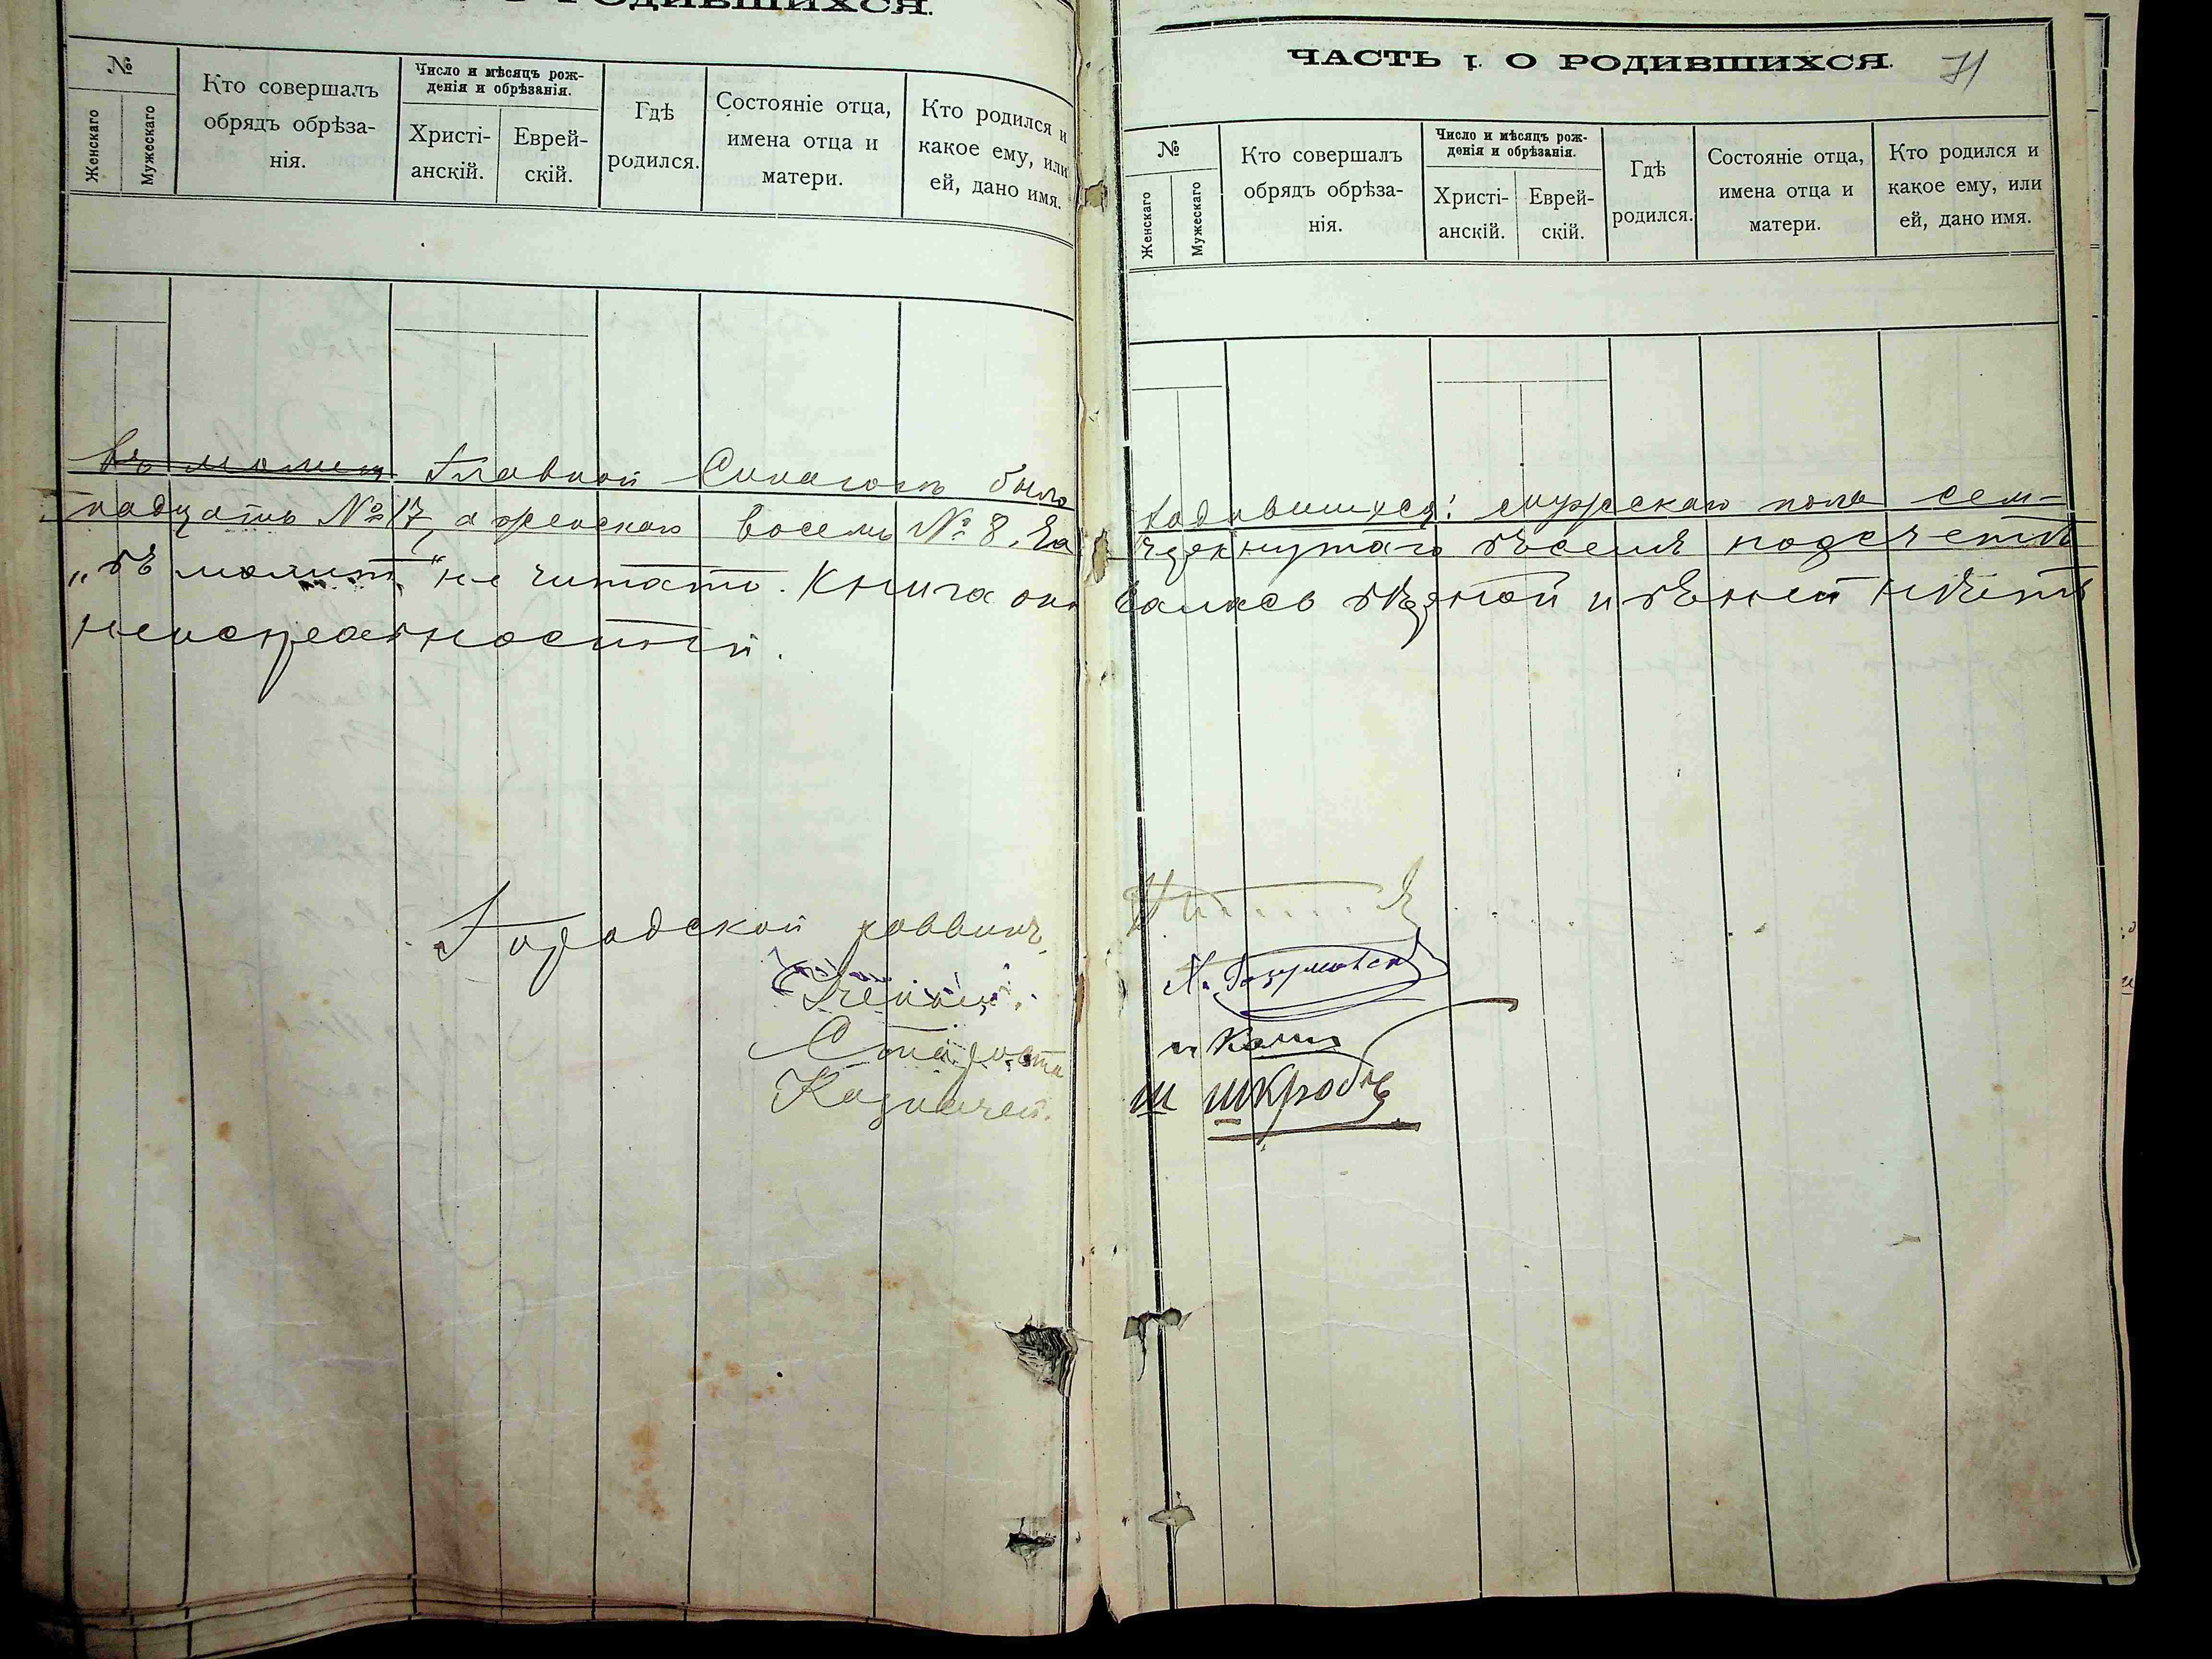 О РОДИВШИХСЯ.
№
Женскаго
Мужескаго
Кто совершалъ
обрядъ обрѣза-
нія.
Число и мѣсяцъ рож-
денія и обрѣзанія.
Христі-
анскій.
Еврей-
скій.
Гдѣ
родился.
Состояніе отца,
имена отца и
матери.
Кто родился и
какое ему, или
ей, дано имя.
ЧАСТЬ I. О РОДИВШИХСЯ.
71
№
Женскаго
Мужескаго
Кто совершалъ
обрядъ обрѣза-
нія.
Число и мѣсяцъ рож-
денія и обрѣзанія.
Христі-
анскій.
Еврей-
скій.
Гдѣ
родился.
Состояніе отца,
имена отца и
матери.
Кто родился и
какое ему, или
ей, дано имя.
въ молит Главной Синагогѣ было родившихся: мужскаго пола сем-
надцать № 17, а женскаго восемь № 8. За черкнутаго въ семъ подсчетѣ
„въ молит“ не читать. Книга ока залась вѣрной и въ ней нѣтъ
неисправностей.
Городской раввинъ
Ученый
Староста
Казначей
Ш Шкробъ